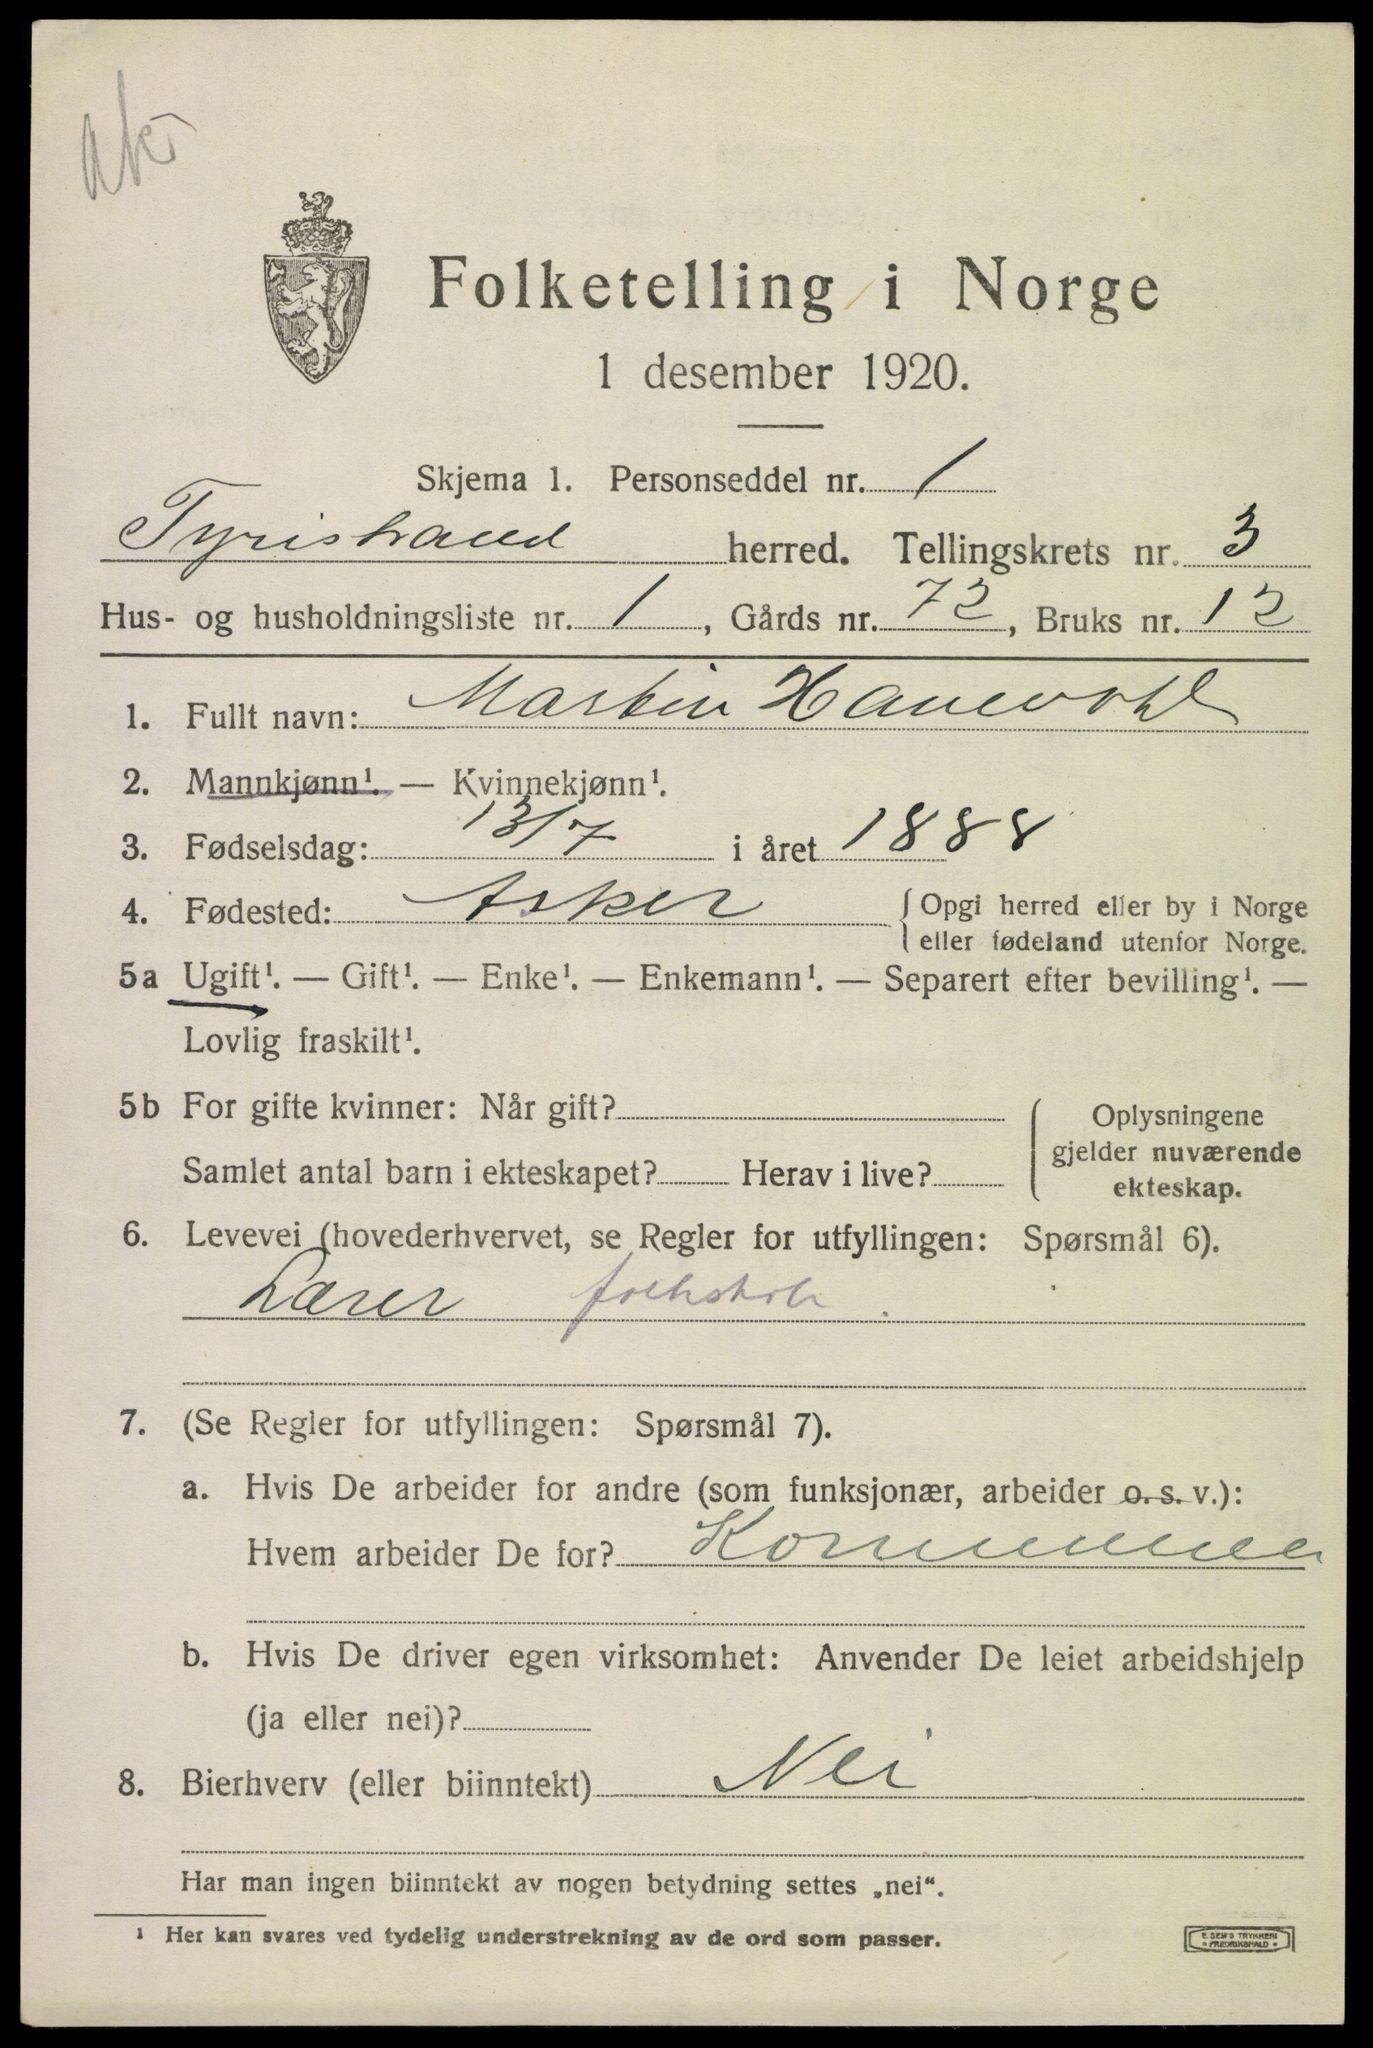 Folketelling i Norge
1 desember 1920.
Skjema 1. Personseddel nr. 1
Tyristrand herred. Tellingskrets nr. 3
Hus- og husholdningsliste nr. 1, Gårds nr. 72, Bruks nr. 12
1. Fullt navn: Martin Hanevold
2. Mannkjønn¹. — Kvinnekjønn¹.
3. Fødselsdag: 13/7 i året 1888
4. Fødested: Asker { Opgi herred eller by i Norge
eller fødeland utenfor Norge.
5a Ugift¹. — Gift¹. — Enke¹. — Enkemann¹. — Separert efter bevilling¹. —
Lovlig fraskilt¹.
5b For gifte kvinner: Når gift?
Samlet antal barn i ekteskapet? Herav i live?
{ Oplysningene
gjelder nuværende
ekteskap.
6. Levevei (hovederhvervet, se Regler for utfyllingen: Spørsmål 6).
Lærer folkskole
7. (Se Regler for utfyllingen: Spørsmål 7).
a. Hvis De arbeider for andre (som funksjonær, arbeider o. s. v.):
Hvem arbeider De for? Kommunen
b. Hvis De driver egen virksomhet: Anvender De leiet arbeidshjelp
(ja eller nei)?
8. Bierhverv (eller biinntekt) Nei
Har man ingen biinntekt av nogen betydning settes „nei“.
¹ Her kan svares ved tydelig understrekning av de ord som passer.
E. SEM'S TRYKKERI
FREDRIKSHALD